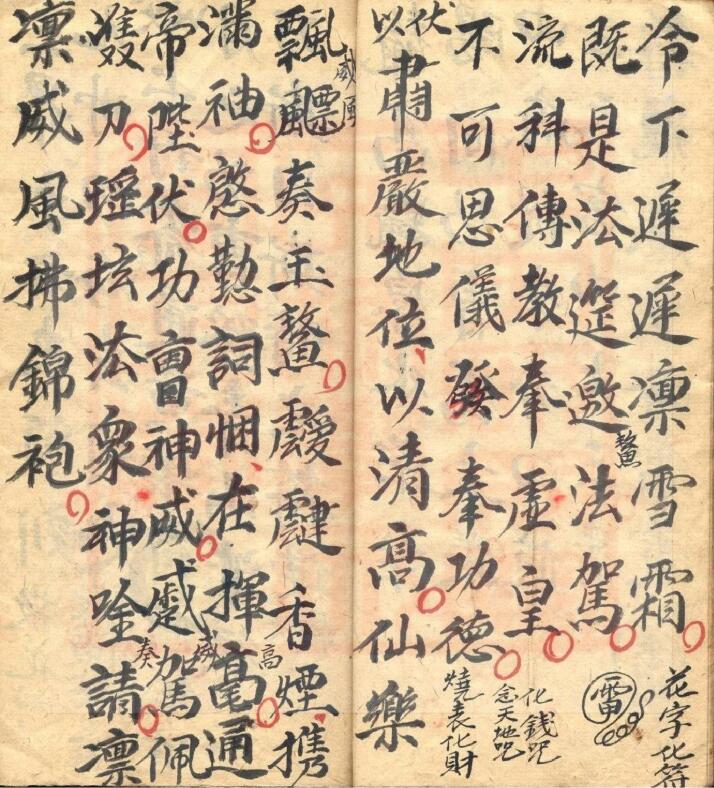 冷下遲遲凛雪霜 花字化符
既是法筵邀法駕 鰲 雷
流科傳教奉虚皇 化錢咒 念天地咒
不可思儀發奉功德 燒表化財
伏以肅嚴地位以清高仙樂
飄飄 威風 奏玉鰲靉靆香煙携 高
滿袖慇懃詞悃在揮毫通 威
帝陛伏功曹神威威駕佩 奏
刀瑶坛法衆神唫請凛
凛威風拂錦袍